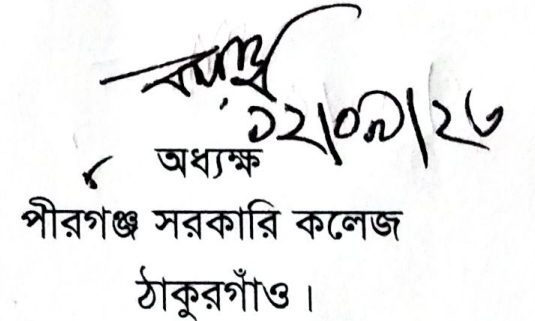 ১২/০৯/২৬
অধ্যক্ষ
পীরগঞ্জ সরকারি কলেজ
ঠাকুরগাঁও।